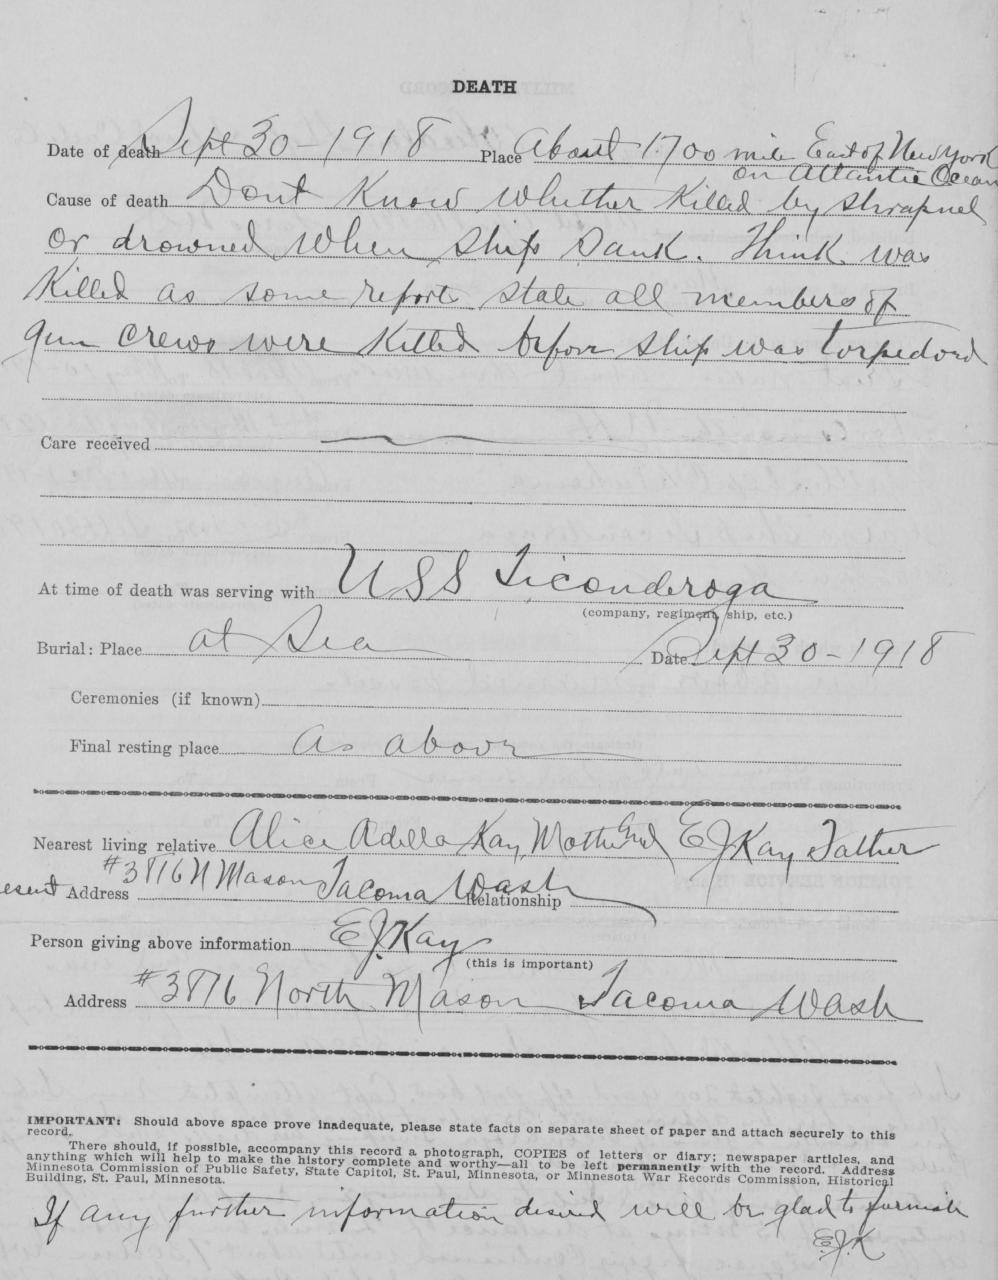 DEATH
Date of death Sept 30-1918 Place About 1700 mile East of New York
on Atlantic Ocean
Cause of death Dont Know Whether Killed by Shrapnel
or drowned When Ship Sank. Think was
Killed as some reports state all members of
gun crews were Killed before ship was torpedoed
Care received
At time of death was serving with USS Ticonderoga
(company, regiment, ship, etc.)
Burial: Place at Sea Date Sept 30-1918
Ceremonies (if known)
Final resting place As above
Nearest living relative Alice Adella Kay, Mother and E J Kay Father
#3816 N Mason Tacoma Wash
esent Address Relationship
Person giving above information E.J. Kay
(this is important)
Address #3816 North Mason Tacoma Wash
IMPORTANT: Should above space prove inadequate, please state facts on separate sheet of paper and attach securely to this
record.
There should, if possible, accompany this record a photograph, COPIES of letters or diary; newspaper articles, and
anything which will help to make the history complete and worthy—all to be left permanently with the record. Address
Minnesota Commission of Public Safety, State Capitol, St. Paul, Minnesota, or Minnesota War Records Commission, Historical
Building, St. Paul, Minnesota.
If any further information desired will be glad to furnish
E.J.K